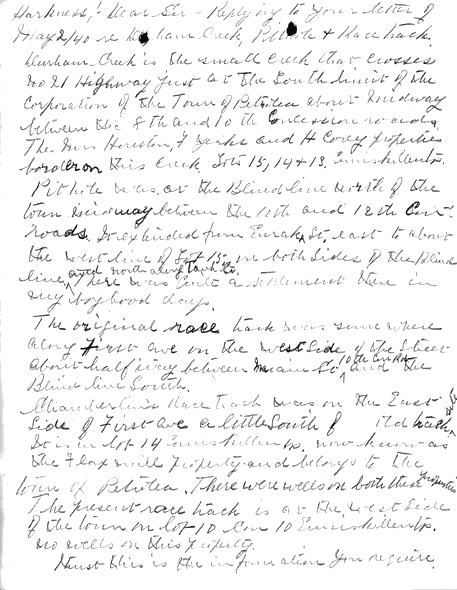 Harkness,: Dear Sir - Replying to your letter of
May 2/40 re Durham Creek, Pithole & Race track.
Durham Creek is the small creek that crosses
no 21 Highway just at the South limit of the
Corporation of the Town of Petrolea about midway
between the 8th and 10th Concession roads
The Houston, F Yerks and H Corey properties
border on this Creek Lots 15, 14 & 13. Enniskillen tp.
Pit hole was at the Blind line north of the
town midway between the 11th and 12th Con.
roads. It extended from Eureka St. east to about
the west line of Lot 15 on both sides of the Blind
line, and north along Tank St. There was quite a settlement there in
my boyhood days.
The original race track was some where
along First ave on the west side of the street
about half way between Main St. 10th Con Rd and the
Blind line South.
Chamberlin's Race track was on the East
Side of First ave a little South of old track
It is in lot 14 Enniskillen tp. now know as
the Flax mill property and belongs to the
town of Petrolea. There were wells on both these properties
The present race track is at the west side
of the town on lot 10 Con 10 Enniskillen tp.
no wells on this property.
Trust this is the information you require.